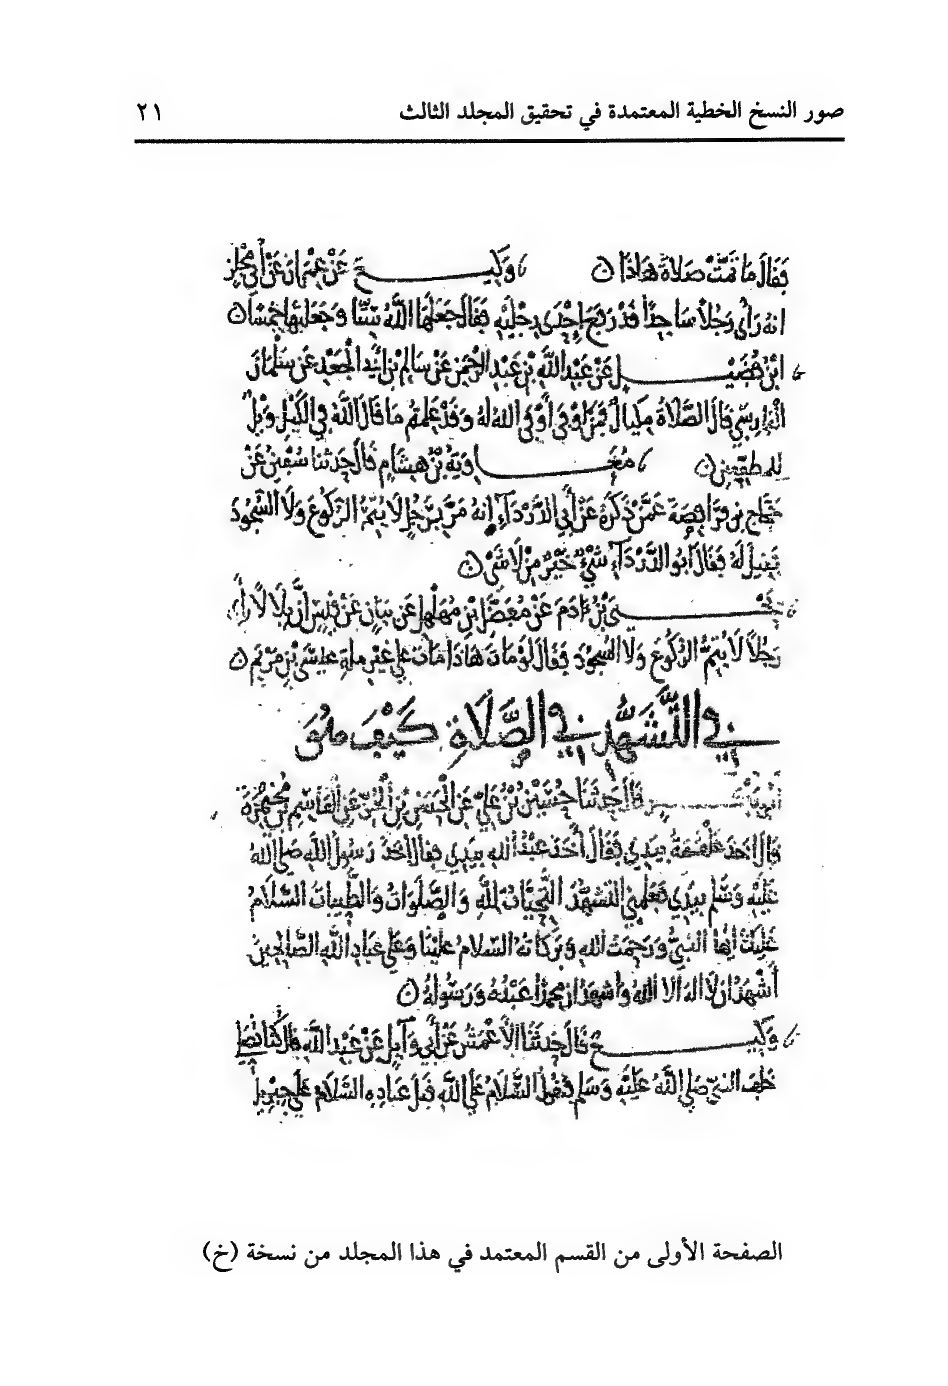 صور النسخ الخطية المعتمدة في تحقيق المجلد الثالث ٢١
فقال ما تمت صلاة هاذا وكيع عن عمران عن أبي مجلز
انه رأى رجلا ساجدا قد رفع إحدى رجليه فقال جعلها الله ستا وجعلتها خمسا
ابن فضيل عن عبد الله بن عبد الرحمن عن سالم بن أبي الجعد عن سلمان
الفارسي قال الصلاة مكيال فمن أوفى أوفى الله له وقد علمتم ما قال الله في الكيل ويل
للمطففين معاوية بن هشام قال حدثنا سفين عن
حجاج بن فرافصة عمن ذكره عن أبي الدرداء إنه مر برجل لا يتم الركوع ولا السجود
فقيل له فقال أبو الدرداء شيء خير من لا شيء
يحيى بن ءادم عن مفضل بن مهلهل عن بيان عن قيس أن بلالا رأى
رجلا لا يتم الركوع ولا السجود فقال لو مات هاذا مات على غير ملة عيسى بن مريم
في التشهد في الصلاة كيف هو
قال حدثنا حسين بن علي عن الحسن بن الحر عن القاسم بن مخيمرة
قال اخذ علقمة بيدي فقال أخذ عبد الله بيدي فقال اخذ رسول الله صلى الله
عليه وسلم بيدي فعلمني التشهد التحيات لله والصلوات والطيبات السلام
عليك أيها النبي ورحمت الله وبركاته السلام علينا وعلى عباد الله الصالحين
أشهد ان لا اله الا الله وأشهد ان محمدا عبده ورسوله
وكيع قال حدثنا الأعمش عن أبي وآيل عن عبد الله قال كنا نصلي
خلف النبي صلى الله عليه وسلم فنقول السلام على الله قبل عباده السلام على جبريل
الصفحة الأولى من القسم المعتمد في هذا المجلد من نسخة (خ)